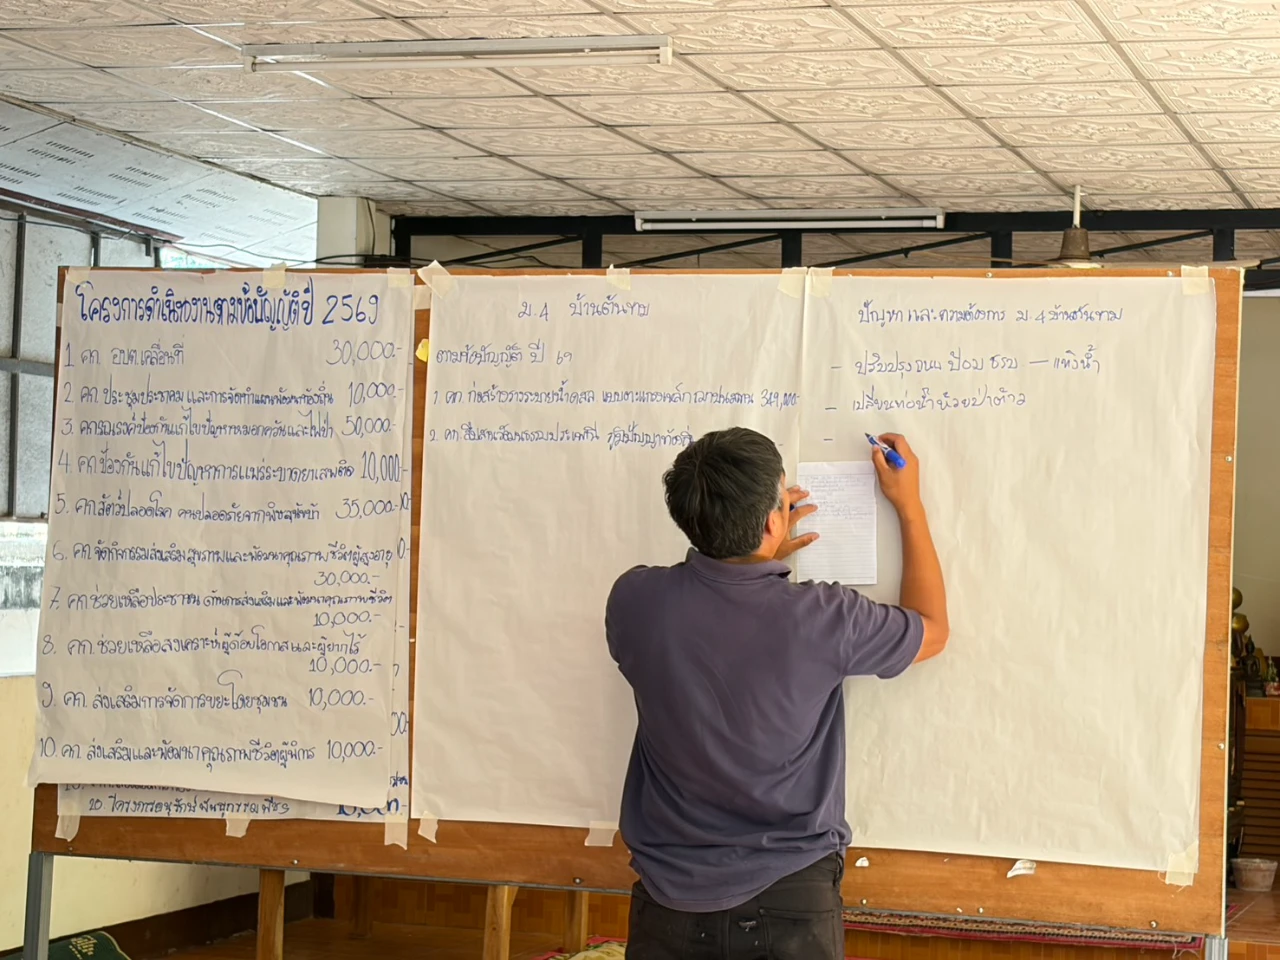 โครงการดำเนินงานตามข้อบัญญัติปี 2569
1. คก. อบต.เคลื่อนที่ 30,000.-
2. คก. ประชุมประชาคม และการจัดทำแผนพัฒนาท้องถิ่น 10,000.-
3. คก.รณรงค์ป้องกันแก้ไขปัญหาหมอกควันและไฟป่า 50,000.-
4. คก.ป้องกันแก้ไขปัญหาการแพร่ระบาดยาเสพติด 10,000-
5. คก.สัตว์ปลอดโรค คนปลอดภัยจากพิษสุนัขบ้า 35,000.-
6. คก.จัดกิจกรรมส่งเสริมสุขภาพและพัฒนาคุณภาพชีวิตผู้สูงอายุ
30,000.-
7. คก.ช่วยเหลือประชาชน ด้านการส่งเสริมและพัฒนาคุณภาพชีวิต
10,000.-
8. คก.ช่วยเหลือสงเคราะห์ผู้ด้อยโอกาสและผู้ยากไร้
10,000.-
9. คก. ส่งเสริมการจัดการขยะโดยชุมชน 10,000.-
10. คก. ส่งเสริมและพัฒนาคุณภาพชีวิตผู้พิการ 10,000.-
20 โครงการอนุรักษ์พันธุกรรมพืชฯ
ม.4 บ้านต้นขาม
ตามข้อบัญญัติ ปี 69
1. คก. ก่อสร้างรางระบายน้ำ คสล. แบบตะแกรงเหล็ก 349,000.-
2. คก. สืบสานวัฒนธรรมประเพณี ภูมิปัญญาท้องถิ่น
ปัญหา และ ความต้องการ ม.4 บ้านต้นขาม
- ปรับปรุงถนน ป้อม ชรบ - แท้งน้ำ
- เปลี่ยนท่อน้ำห้วยป่าติ้ว
-